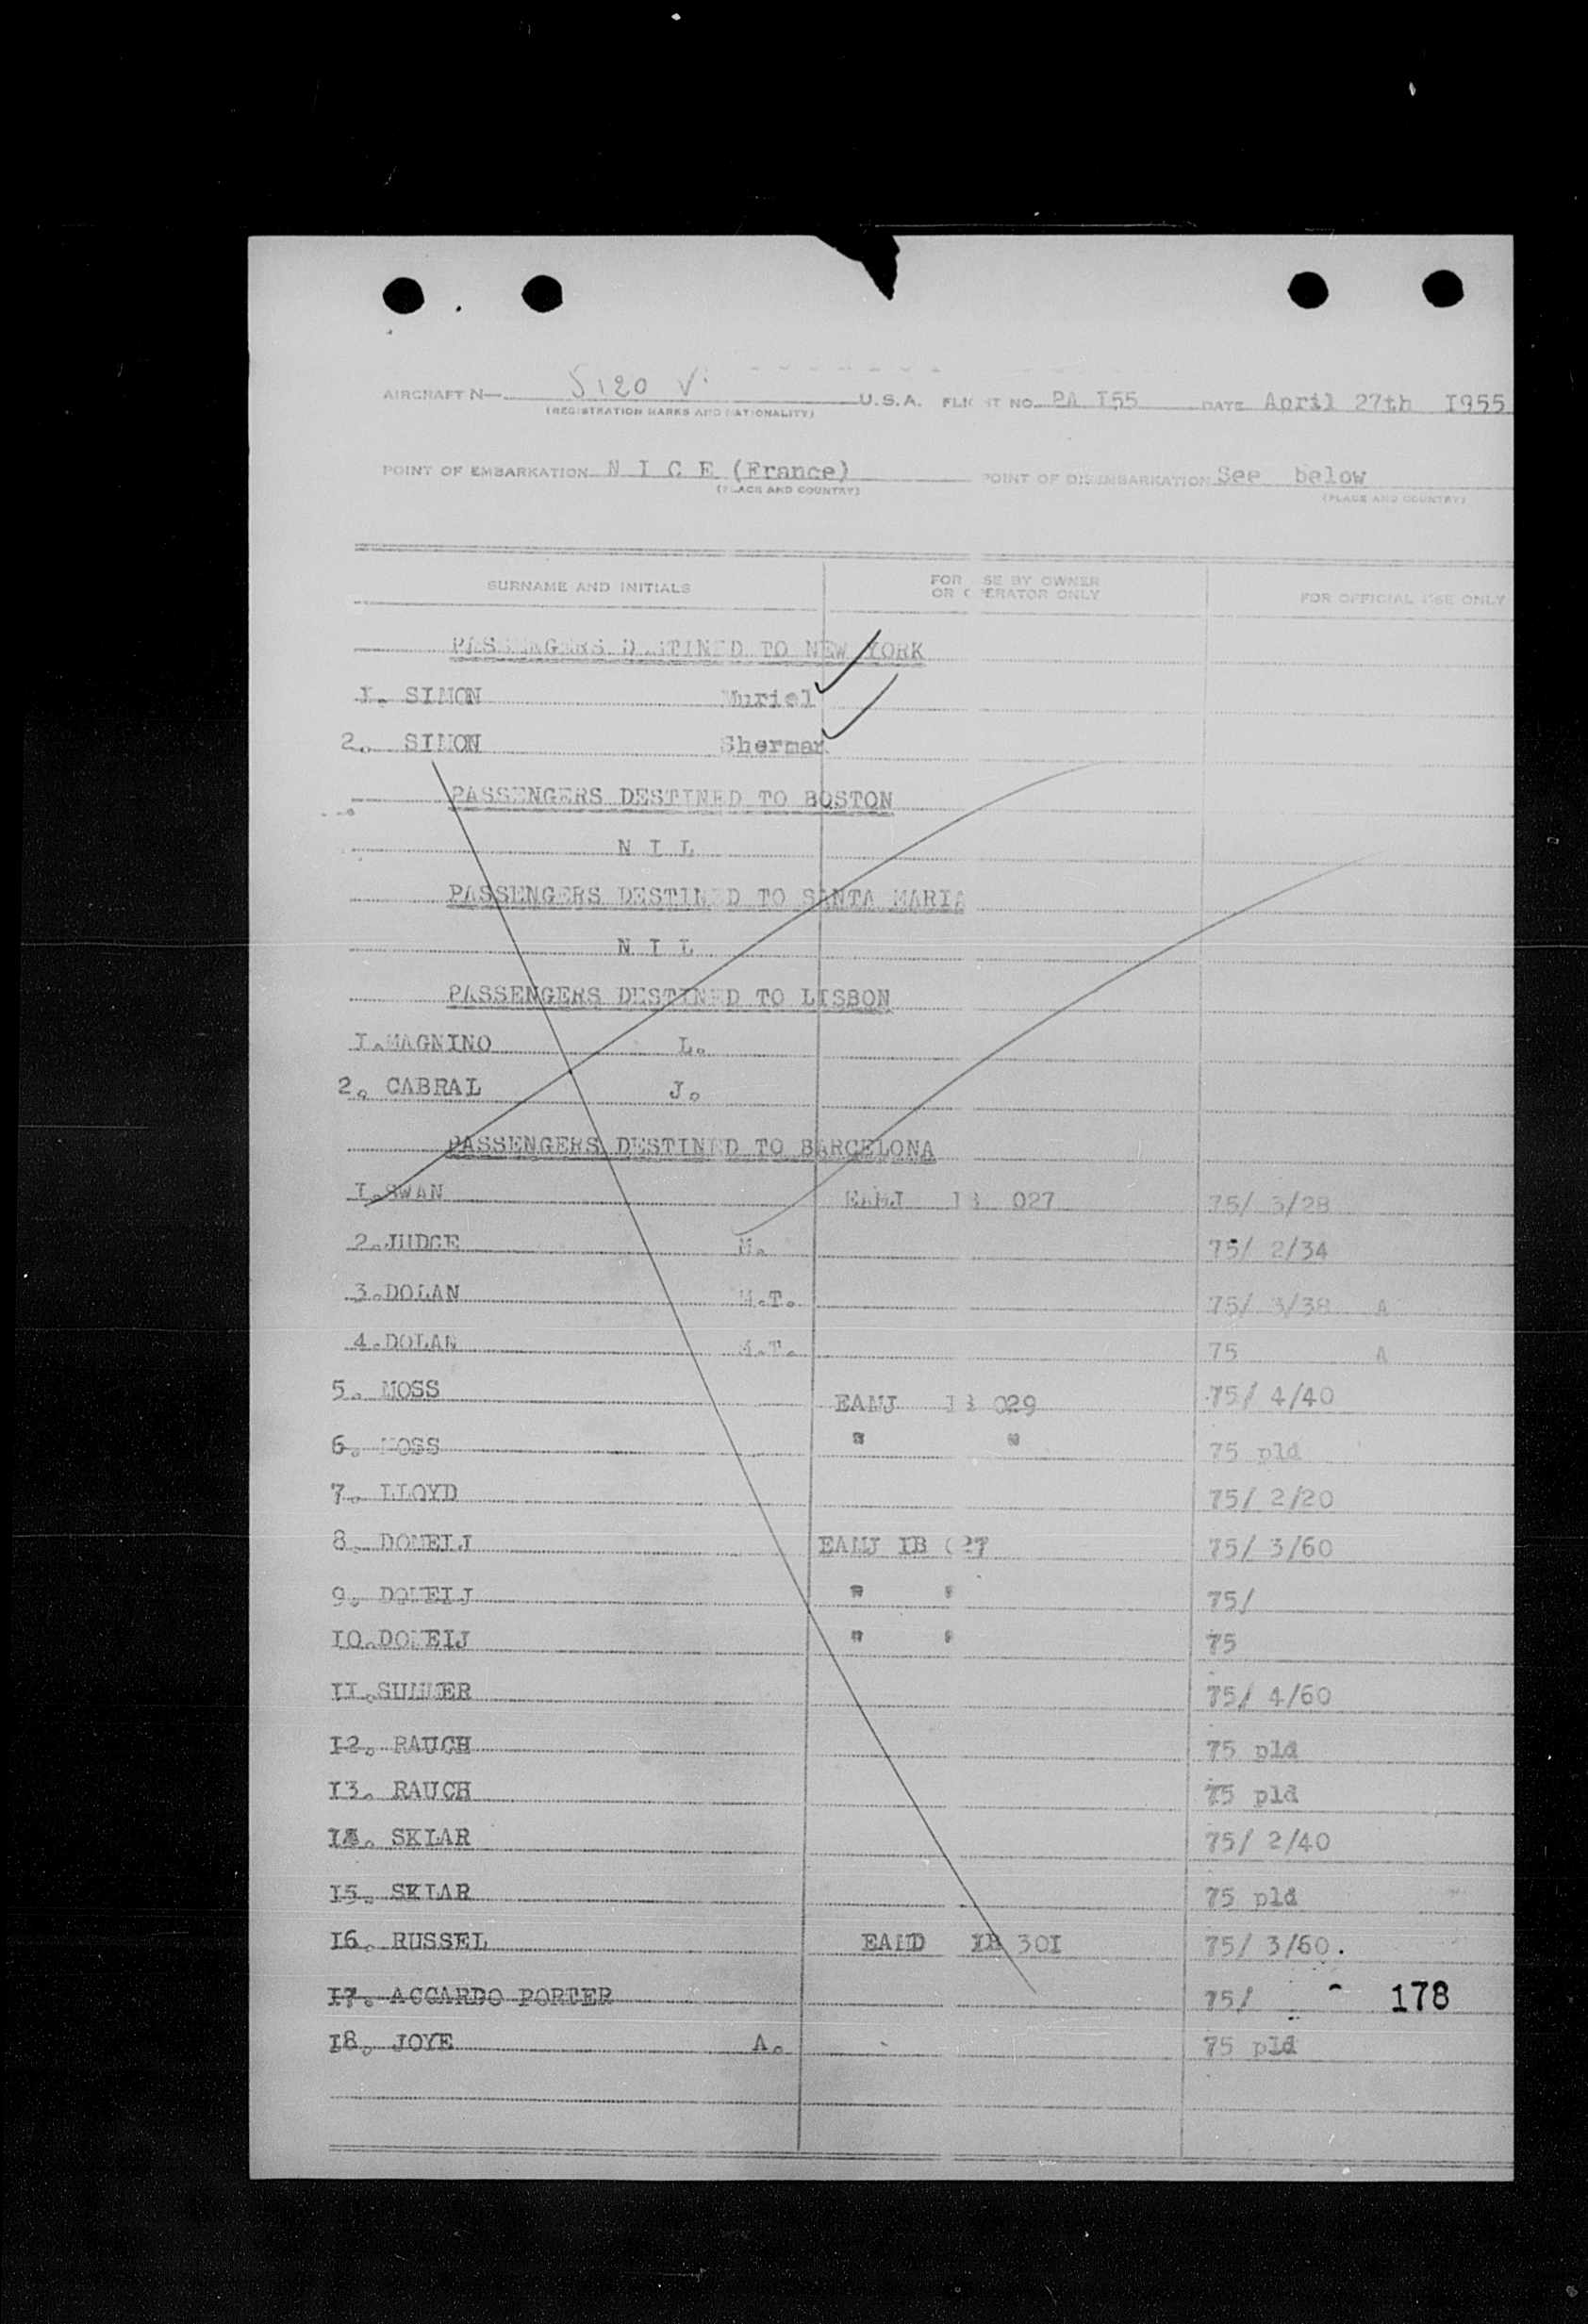 AIRCRAFT N— 5120 V. U.S.A. FLIGHT NO. PA I55 DATE April 27th I955
(REGISTRATION MARKS AND NATIONALITY)
POINT OF EMBARKATION N I C E (France) POINT OF DISEMBARKATION See below
(PLACE AND COUNTRY) (PLACE AND COUNTRY)
SURNAME AND INITIALS FOR USE BY OWNER OR OPERATOR ONLY FOR OFFICIAL USE ONLY
PASSENGERS DESTINED TO NEW YORK
I. SIMON Muriel
2. SIMON Sherman
PASSENGERS DESTINED TO BOSTON
N I L
PASSENGERS DESTINED TO SANTA MARIA
N I L
PASSENGERS DESTINED TO LISBON
I.MAGNINO L.
2. CABRAL J.
PASSENGERS DESTINED TO BARCELONA
I.SWAN EAMJ IB 027 75/ 3/28
2.JUDGE M. 75/ 2/34
3.DOLAN M.T. 75/ 3/38 A
4.DOLAN M.T. 75 A
5. MOSS EAMJ IB 029 75/ 4/40
6. MOSS " " 75 pld
7. LLOYD 75/ 2/20
8. DOMEIJ EAMJ IB 027 75/ 3/60
9. DOMEIJ " " 75/
IO.DOMEIJ " " 75
II.SUMMER 75/ 4/60
I2. RAUCH 75 pld
I3. RAUCH 75 pld
I4. SKLAR 75/ 2/40
I5. SKLAR 75 pld
I6. RUSSEL EAMD IB 30I 75/ 3/60.
I7. ACCARDO PORTER 75/ 178
I8. JOYE A. 75 pld